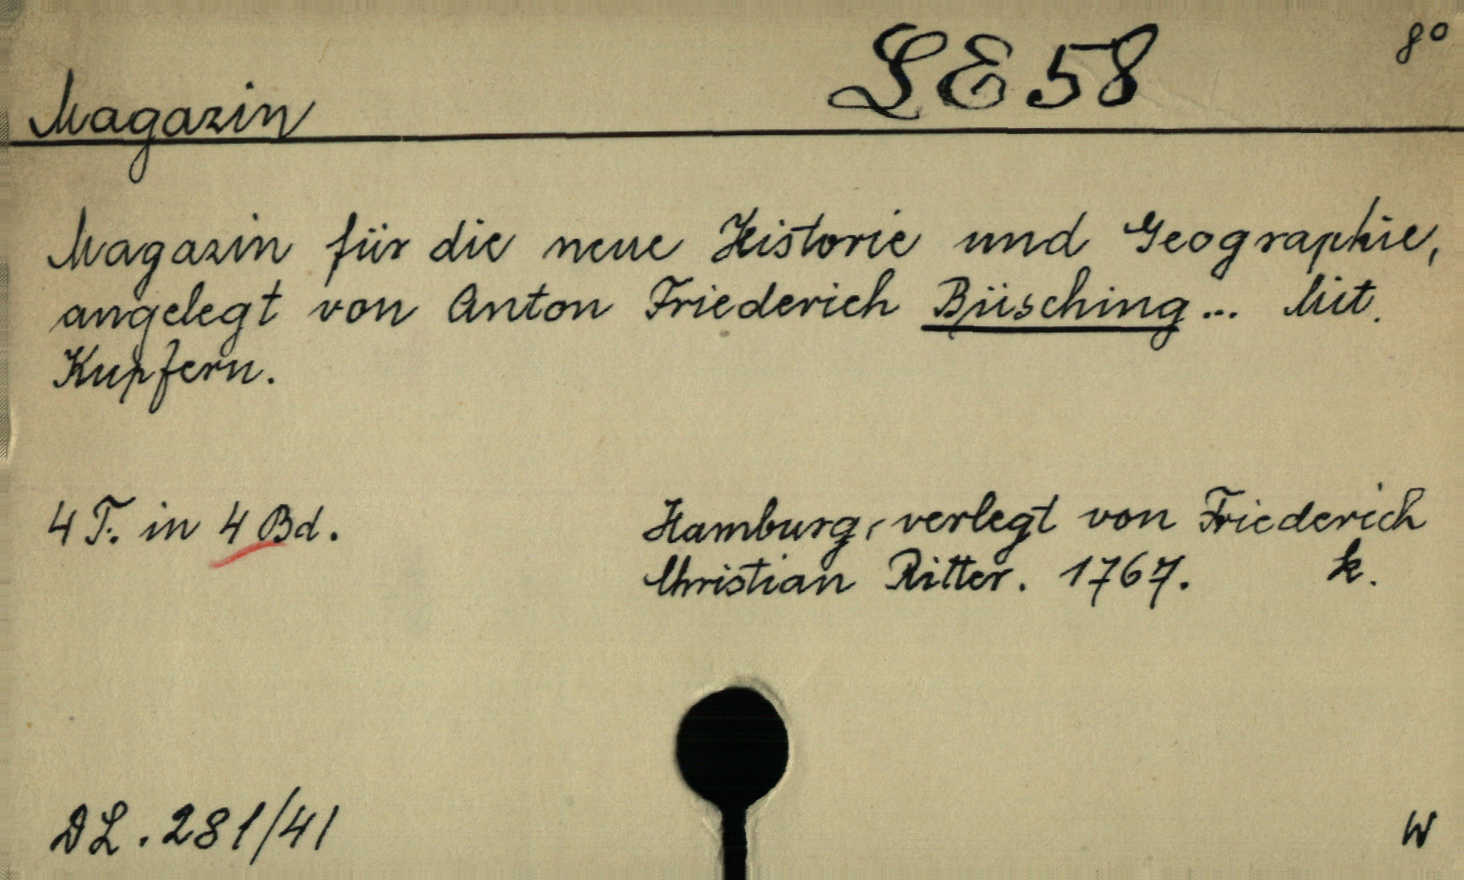 LE 58 8°
Magazin
Magazin für die neue Historie und Geographie,
angelegt von Anton Friederich Büsching... Mit
Kupfern.
4 T. in 4 Bd. Hamburg, verlegt von Friederich
Christian Ritter. 1767. k.
DL. 281/41 W